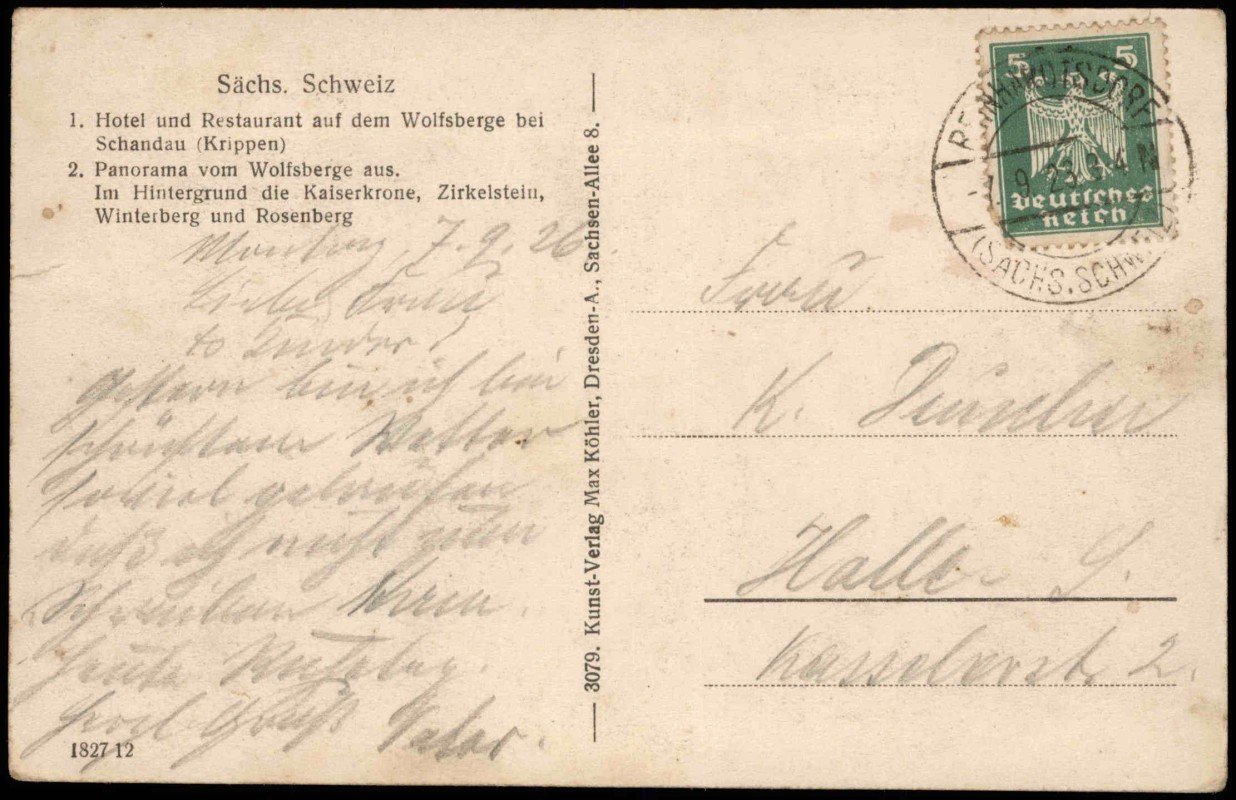 Sächs. Schweiz
1. Hotel und Restaurant auf dem Wolfsberge bei
Schandau (Krippen)
2. Panorama vom Wolfsberge aus.
Im Hintergrund die Kaiserkrone, Zirkelstein,
Winterberg und Rosenberg
Montag, 7.9.26
Liebe Frau
Kinder!
Gestern bin ich bei
schönstem Wetter
soviel gelaufen
daß ich nicht zum
Schreiben kam.
Heute Ruhetag.
Herzl. Gruß Vater.
1827 12
3079. Kunst-Verlag Max Köhler, Dresden-A., Sachsen-Allee 8.
5 5
Deutsches
Reich
REINHARDTSDORF
9. 23. 3-4 N
(SÄCHS. SCHWEIZ)
Frau
K.
Halle S.
Kasselerstr. 2.